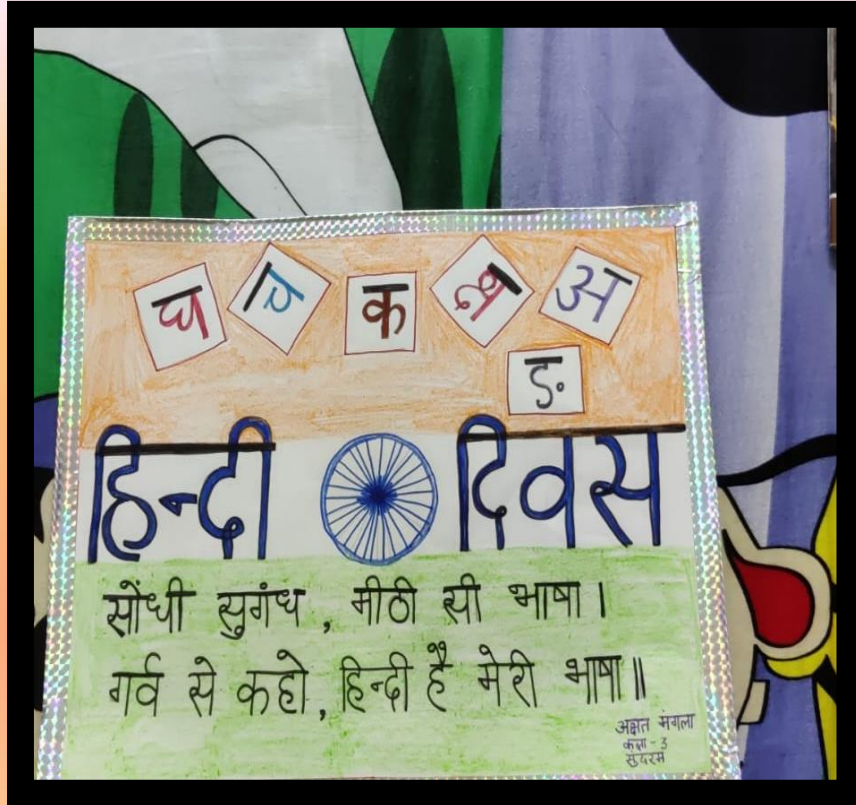 घ च क श्र अ
ङ
हिन्दी दिवस
सोंधी सुगंध, मीठी सी भाषा।
गर्व से कहो, हिन्दी है मेरी भाषा॥
अक्षत मंगला
कक्षा - 3
सुंदरम